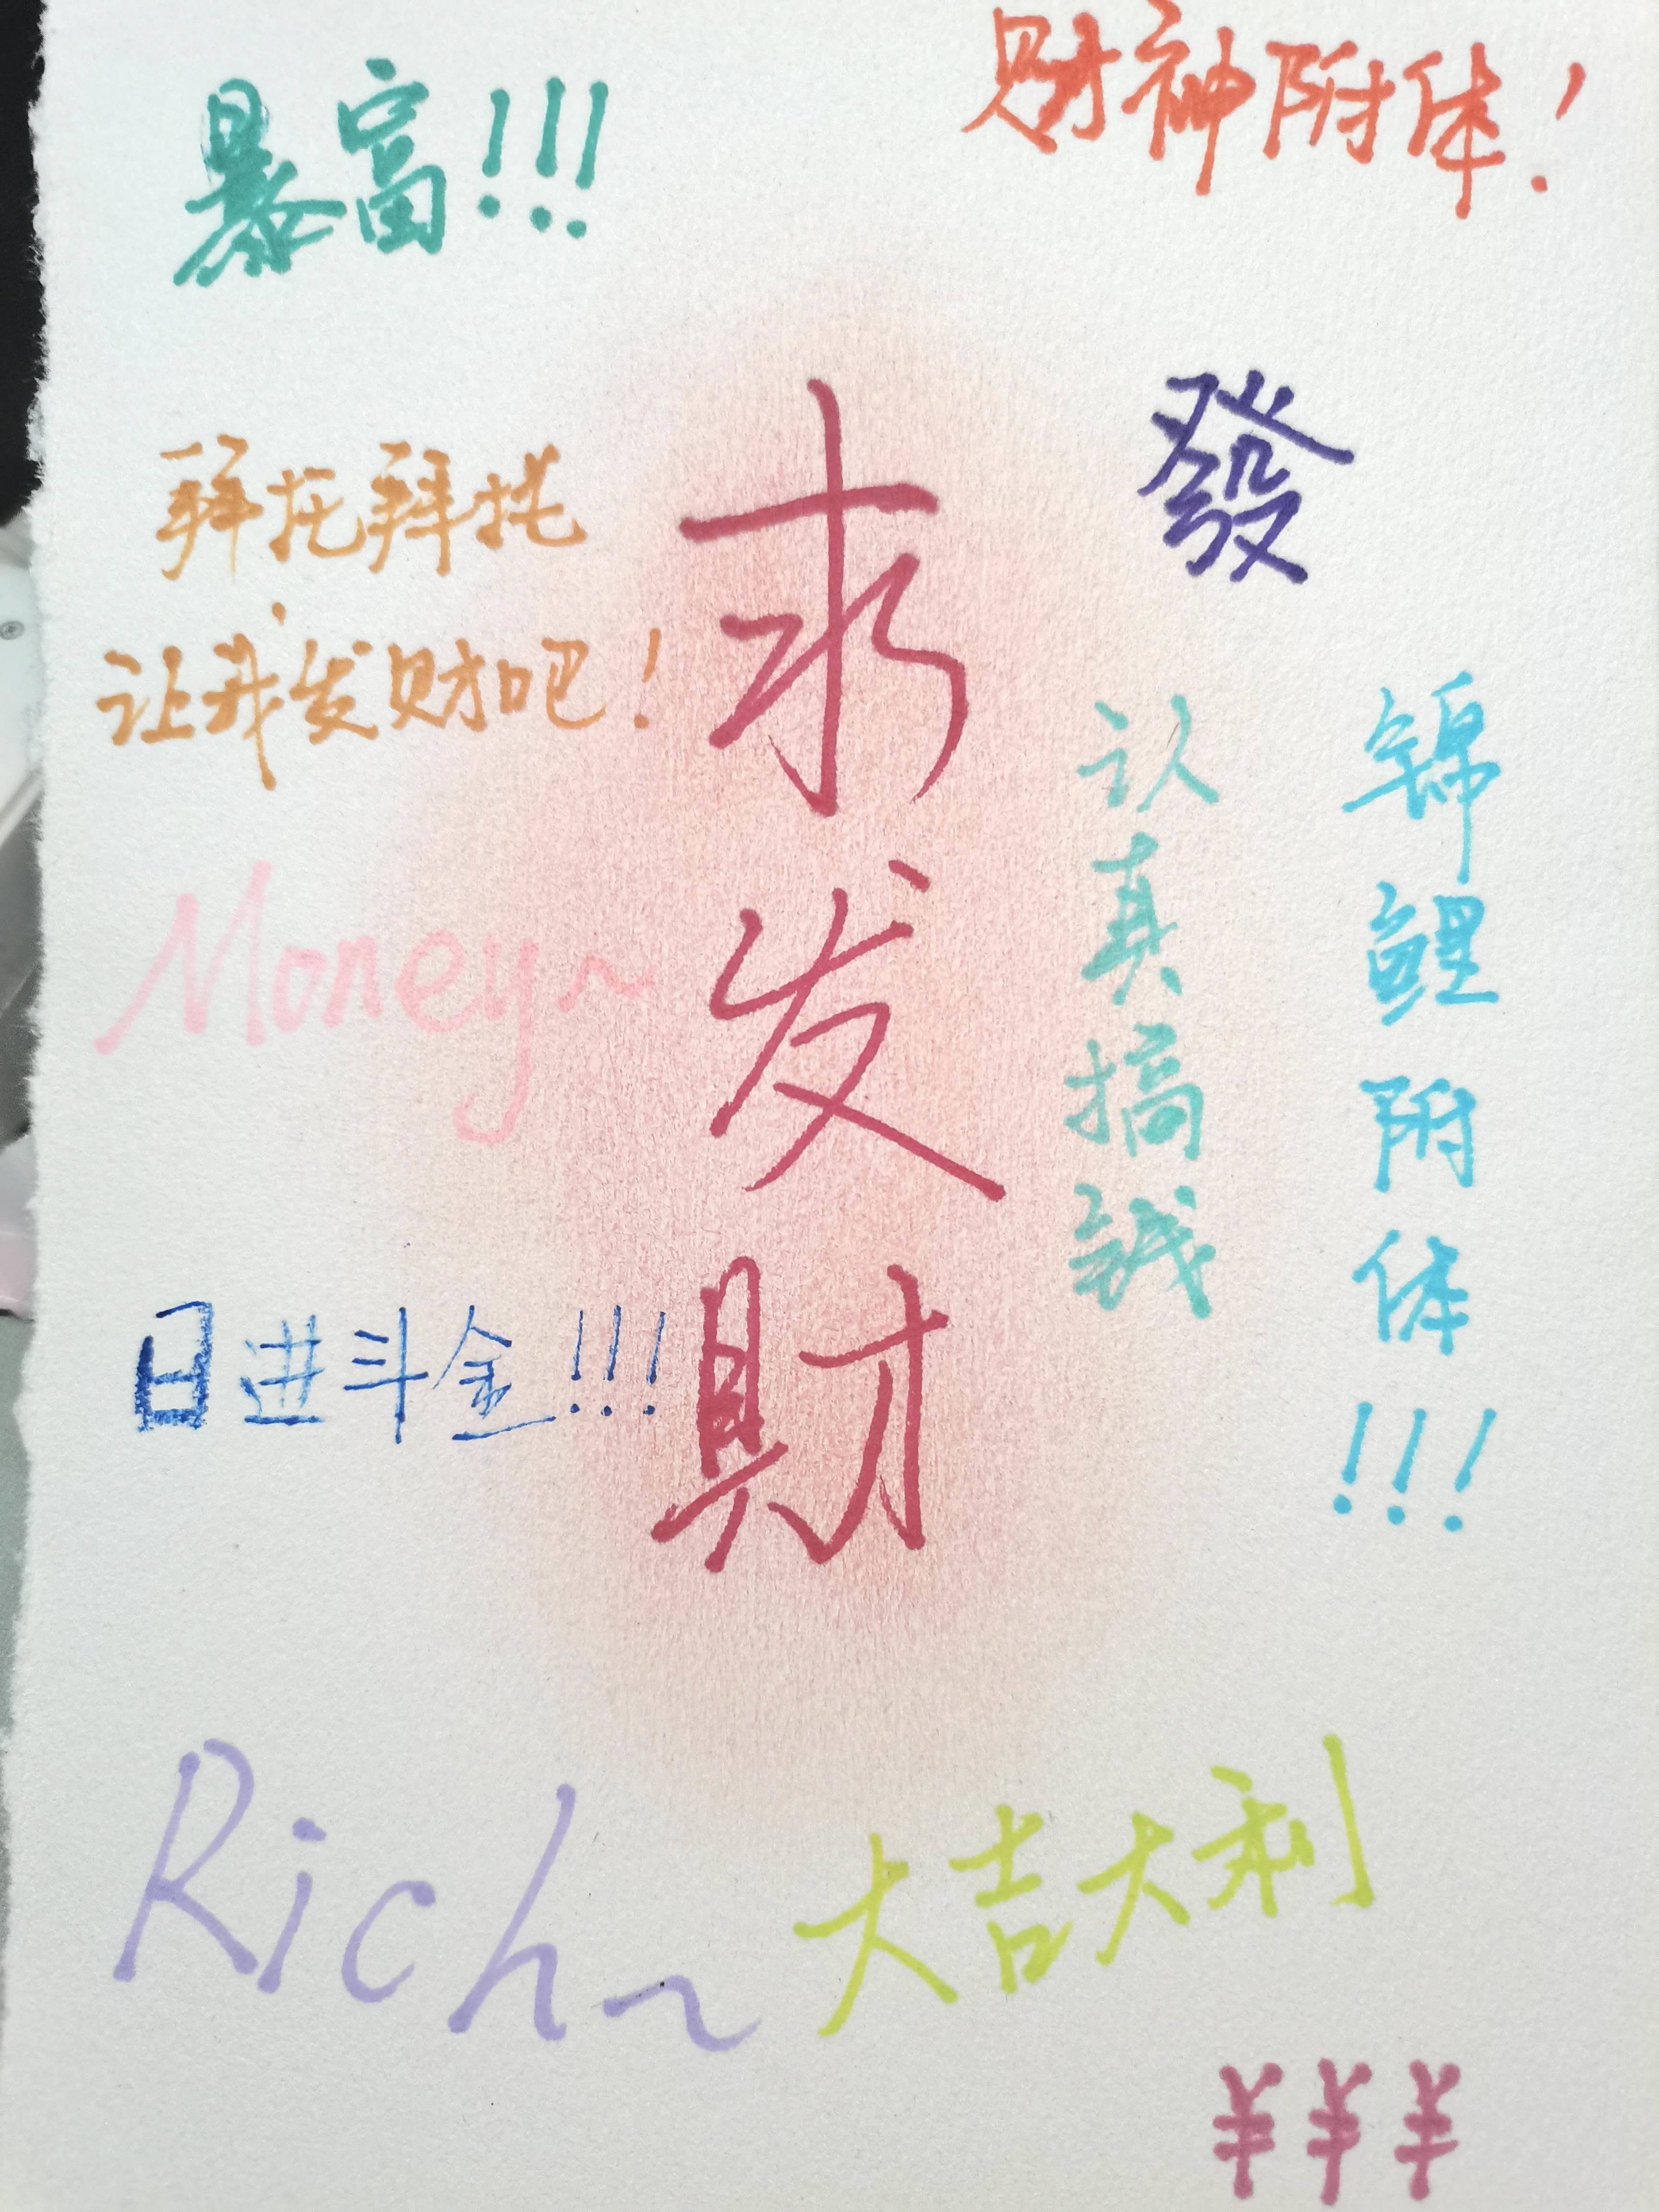 暴富!!!
财神附体!
發
拜托拜托
让我发财吧!
求发财
认真搞錢
锦鲤附体!!!
Money~
日进斗金!!!
Rich~
大吉大利
¥¥¥